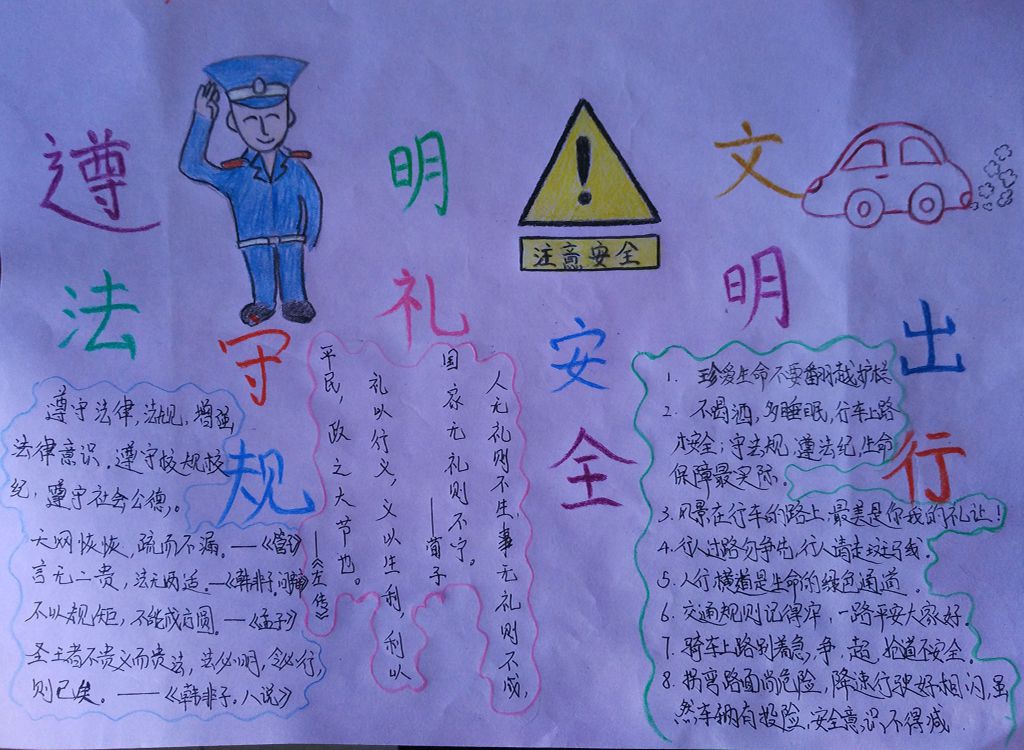 遵法守规
明礼安全
文明出行
注意安全
遵守法律,法规,增强
法律意识。遵守校规校
纪,遵守社会公德。
天网恢恢,疏而不漏。——《管子》
言无二贵,法无两适。——《韩非子·问辩》
不以规矩,不能成方圆。——《孟子》
圣王者不贵义而贵法,法必明,令必行,
则已矣。——《韩非子·八说》
人无礼则不生,事无礼则不成,
国家无礼则不宁。
——荀子
礼以行义,义以生利,利以
平民,政之大节也。
——《左传》
1. 珍爱生命不要翻越护栏
2. 不喝酒,多睡眠,行车上路
才安全;守法规,遵法纪,生命
保障最实际。
3. 风景在行车的路上,最美是你我的礼让!
4. 行人过路勿争先,行人请走斑马线。
5. 人行横道是生命的绿色通道。
6. 交通规则记得牢,一路平安大家好。
7. 骑车上路别着急,争,超,抢道不安全。
8. 拐弯路面尚危险,降速行驶好相闪,虽
然车辆有投险,安全意识不得减